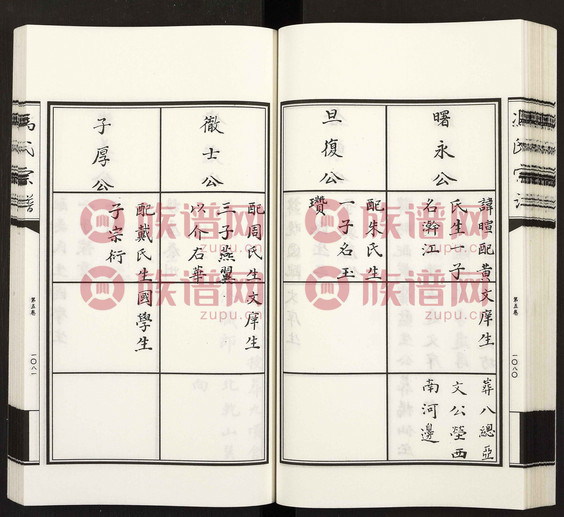 氏宗譜
第五卷
一〇八〇
曙永公
諱暄配黄
氏生一子
名瀚江
文庠生
葬八總亞
文公塋西
南河邊
旦復公
配朱氏生
一子名玉
瓚
徹士公
配周氏生
三子燕翼
以介右華
文庠生
子厚公
配戴氏生
子宗衍
國學生
氏宗譜
第五卷
一〇八一
族谱网 族谱网
zupu.cn zupu.cn
族谱网 族谱网
zupu.cn zupu.cn